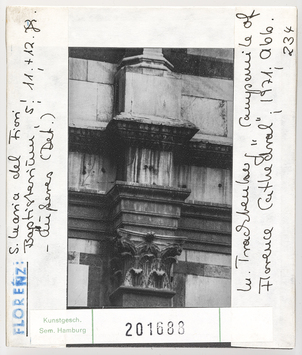 FLORENZ:
S. Maria del Fiore
Baptisterium, S'
11.+12. Jh.
- Äußeres (Det.)
M. Trachtenberg, "Campanile of
Florence Cathedral", 1971, Abb.
234
Kunstgesch.
Sem. Hamburg
201688